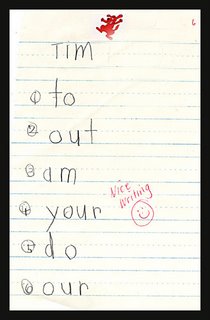 TIM
① to
② out
③ am
Nice
Writing
④ your
⑤ do
⑥ our